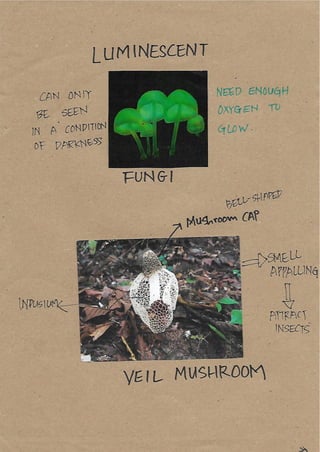 LUMINESCENT
CAN ONLY
BE SEEN
IN A CONDITION
OF DARKNESS
NEED ENOUGH
OXYGEN TO
GLOW.
FUNGI
BELL-SHAPED
MUSHROOM CAP
SMELL
APPALLING
ATTRACT
INSECTS
INDUSIUM
VEIL MUSHROOM